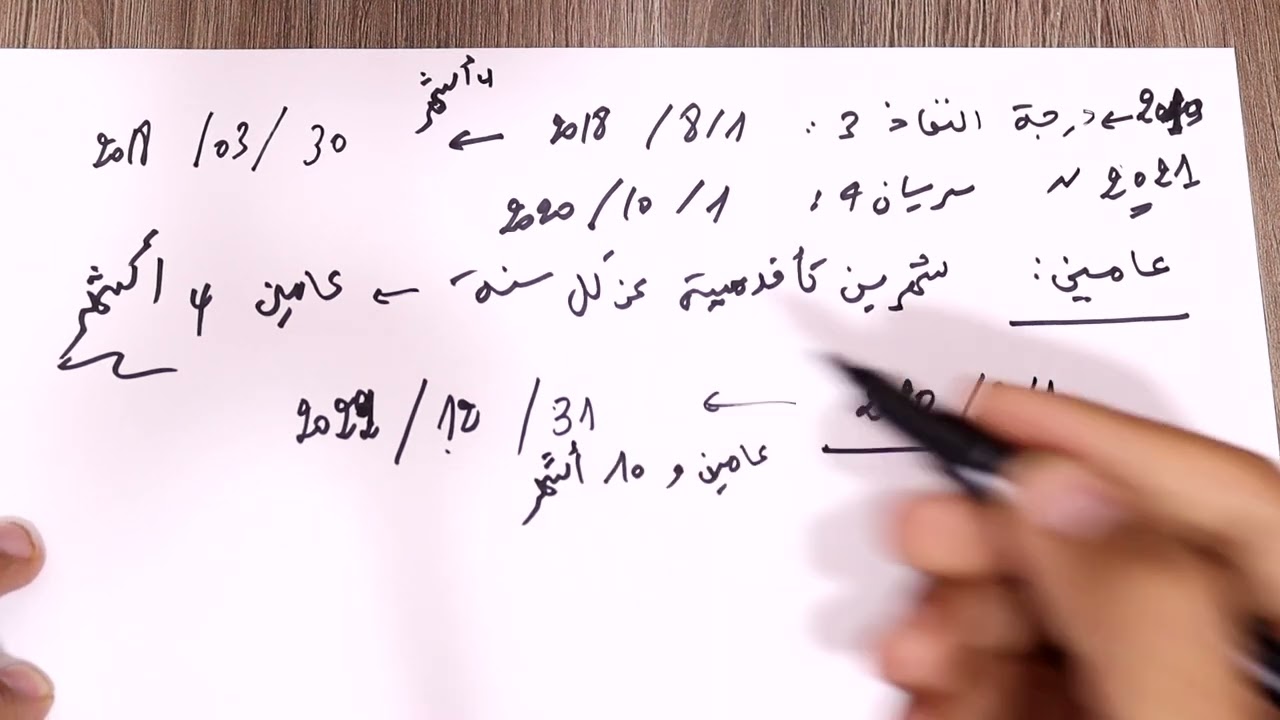 4 أشهر
2019 ← درجة النفاذ 3 : 2018 / 8 / 1 ← 2018 / 03 / 30
2021 ~ سريان 4 : 2020 / 10 / 1
عامين : شهرين كأقدمية عن كل سنة ← عامين 4 أشهر
← 2022 / 12 / 31
عامين و 10 أشهر